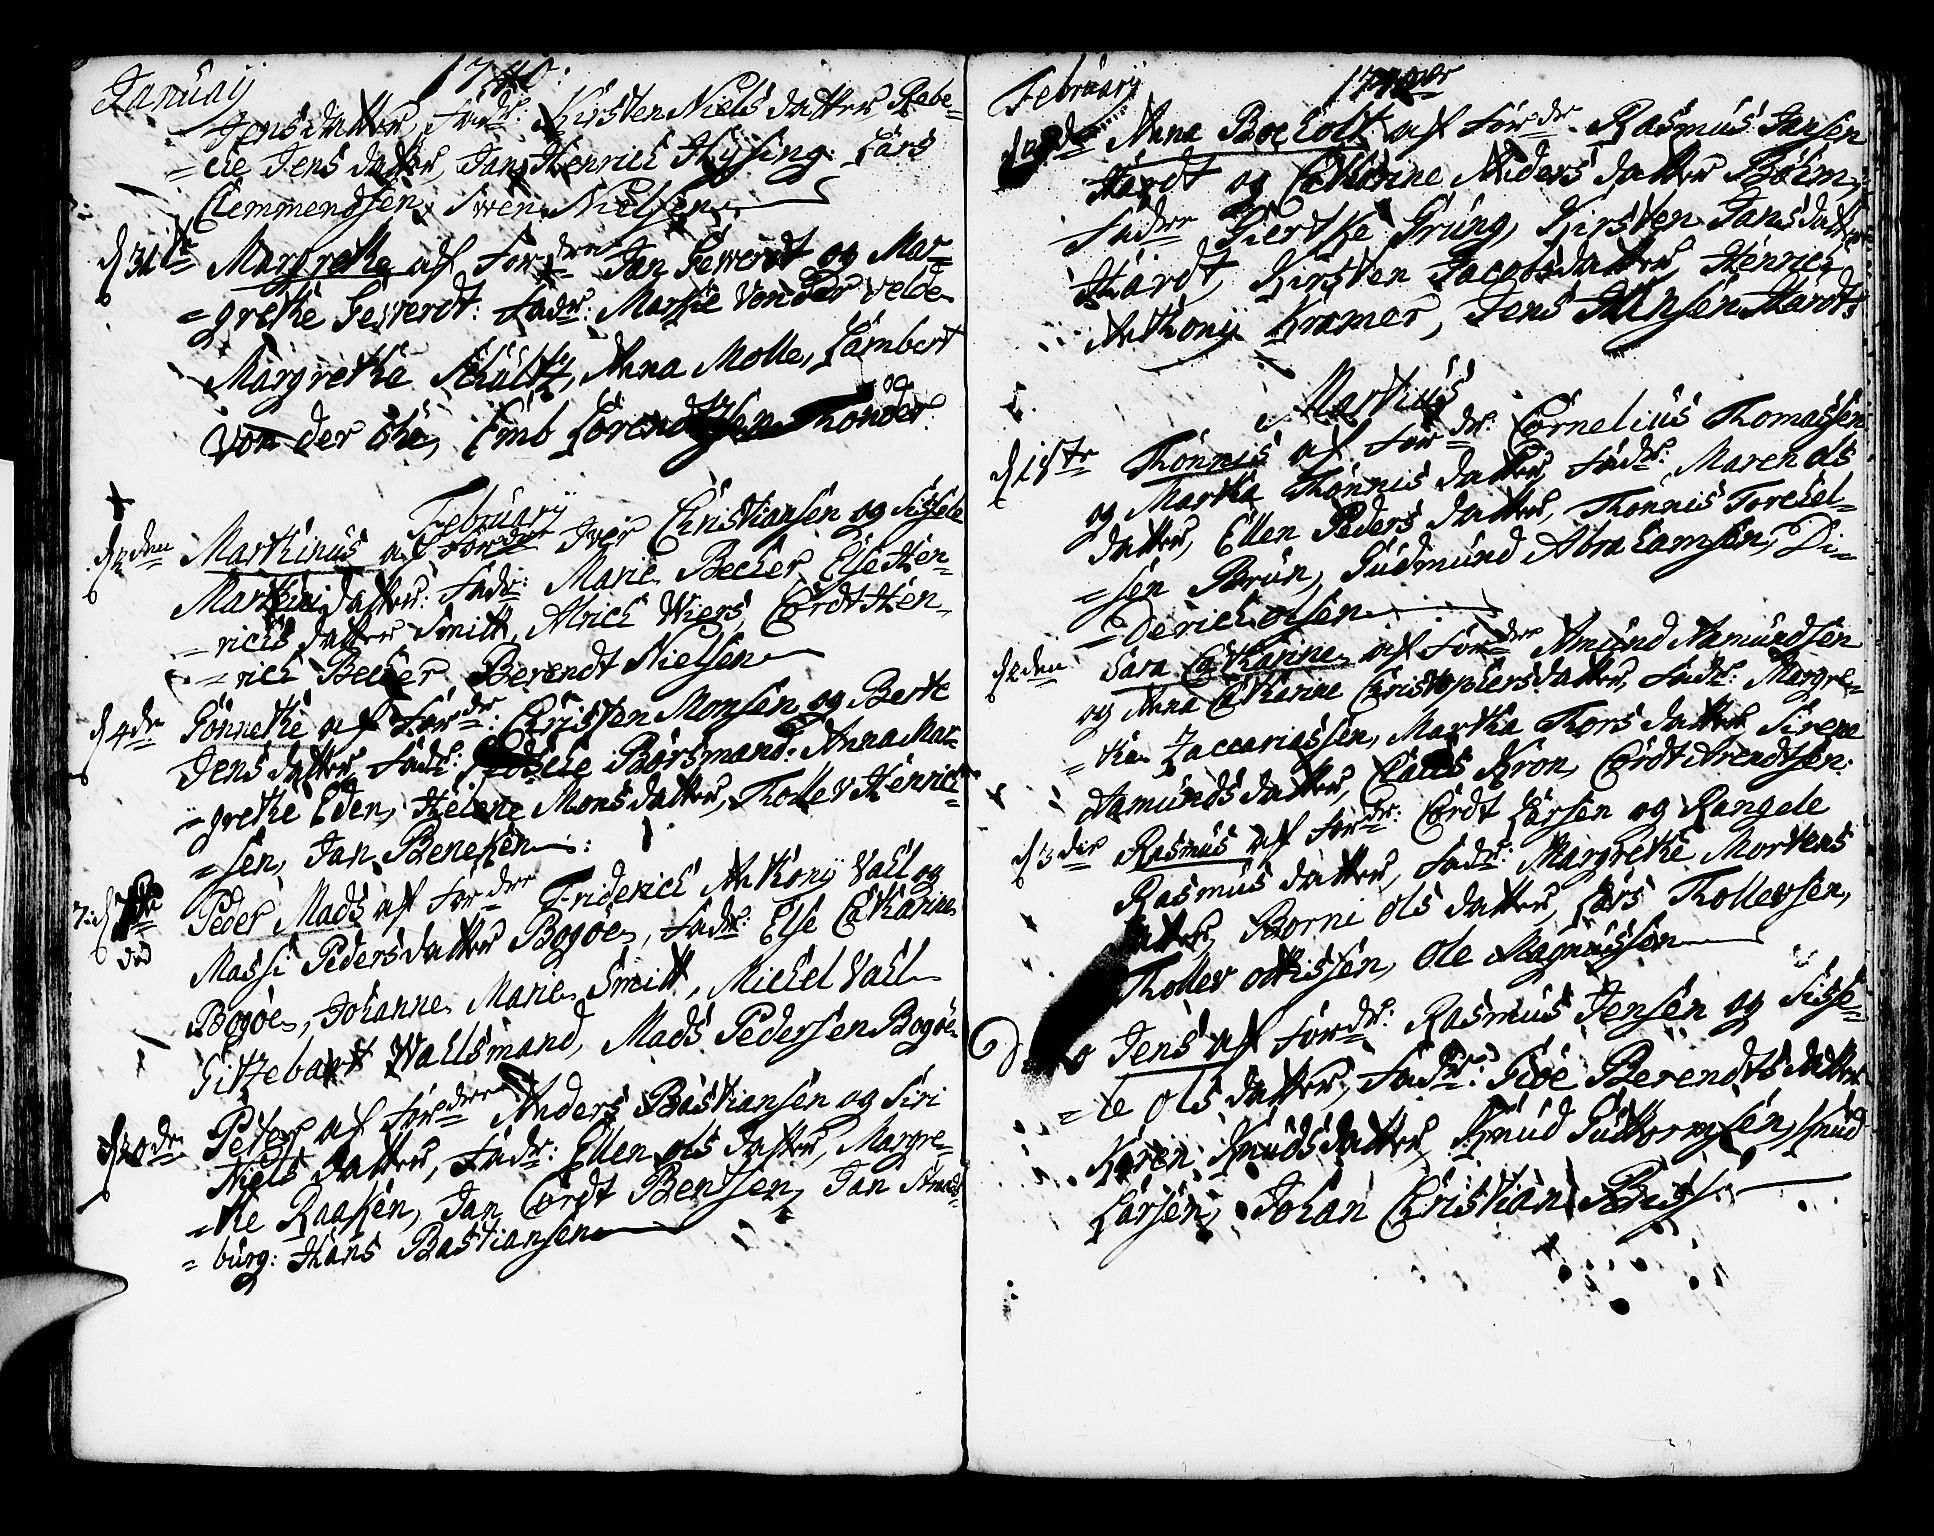 Januarÿ 1740:
Jensdatter, Fadr: Kirsten Nielsdatter, Rebe=
=che Jensdatter, Jan Henrich Hÿsing: Lars
Clemmendsen, Swen Nielsen
d 31te Margrethe af For dre Jan Gewerdt og Mar=
=grethe Gewerdt: Fadr: Marsie Von der Velde
Margretha Schultz, Anna Molle, Lambert
og
Von der Ehe, Emb Lorendtzen Thonder.
Februarÿ
d 2den Marthinus af For dre Iver Christiansen og Sissele
Marthinidatter: Fadr: Marie Becher Else Hen=
=richsdatter Smith, Alrich Wiers, Cordt Hen=
=rich Becher Berendt Nielsen
d 4de Gönneche af Fordr: Christen Monsen og Berte
Jensdatter, Fadr: Börsmand: Anna Mar=
=grethe Eden, Helene Monsdatter, Thollev Henrich=
=sen, Jan Beneken:
7: d
död
Peder Mads af For dre Friderich Anthonÿ Vahl og
Massi Pedersdatter Bogöe, Fadr: Else Catharine
Bogöe, Johanne Marie Smith, Michel Vahl
Gitzebart Wallsmand, Mads Pedersen Bogöe
d 20de Peter af For dre Anders Bastiansen og Siri
Nielsdatter, Fadr: Ellen Olsdatter, Margre=
=the Raaken, Jan Cordt Bentsen, Jan
=burg: Hans Bastiansen
Februarÿ
Anna Bocholt af Fordr Rasmus Jansen
Hardt og Catharine Andersdatter Böem,
Fadrer Giertke Grüng, Kirsten Jansdatter
Hardt, Kirsten Jacobsdatter, Henrich
Anthonÿ Kramer, Jens Jansen Hardt
Martius
d 18te Thönnis af Fordr: Cornelius Thomassen
og Martha Thönnisdatter, Fadr: Maren Ols
datter, Ellen Pedersdatter, Thönnis Torchel=
=sen Brun, Gudmund Abrahamsen, Di=
=derich Olsen
d 2den Sara Catharine af For dre Amund Aamundsen
og Anna Catharine Christophersdatter, Fadr: Margre=
=tha Zaccariassen, Martha Thorsdatter Sirene
Aamundsdatter, Claus Kron, Cordt Arendtsen:
d 3die Rasmus af Fordr: Cordt Larsen og Rangele
Rasmusdatter, Fadr: Margrethe Mortens
datter, Borni Olsdatter, Lars Thollevsen,
Thollev Ottissen, Ole Magnussen
Jens af Fordr: Rasmus Jensen og Sisse=
=le Olsdatter, Fadr: Giöe Berendtsdatter
Karen Knudsdatter, Knud Guttormsen, Knud
Larsen, Johan Christian